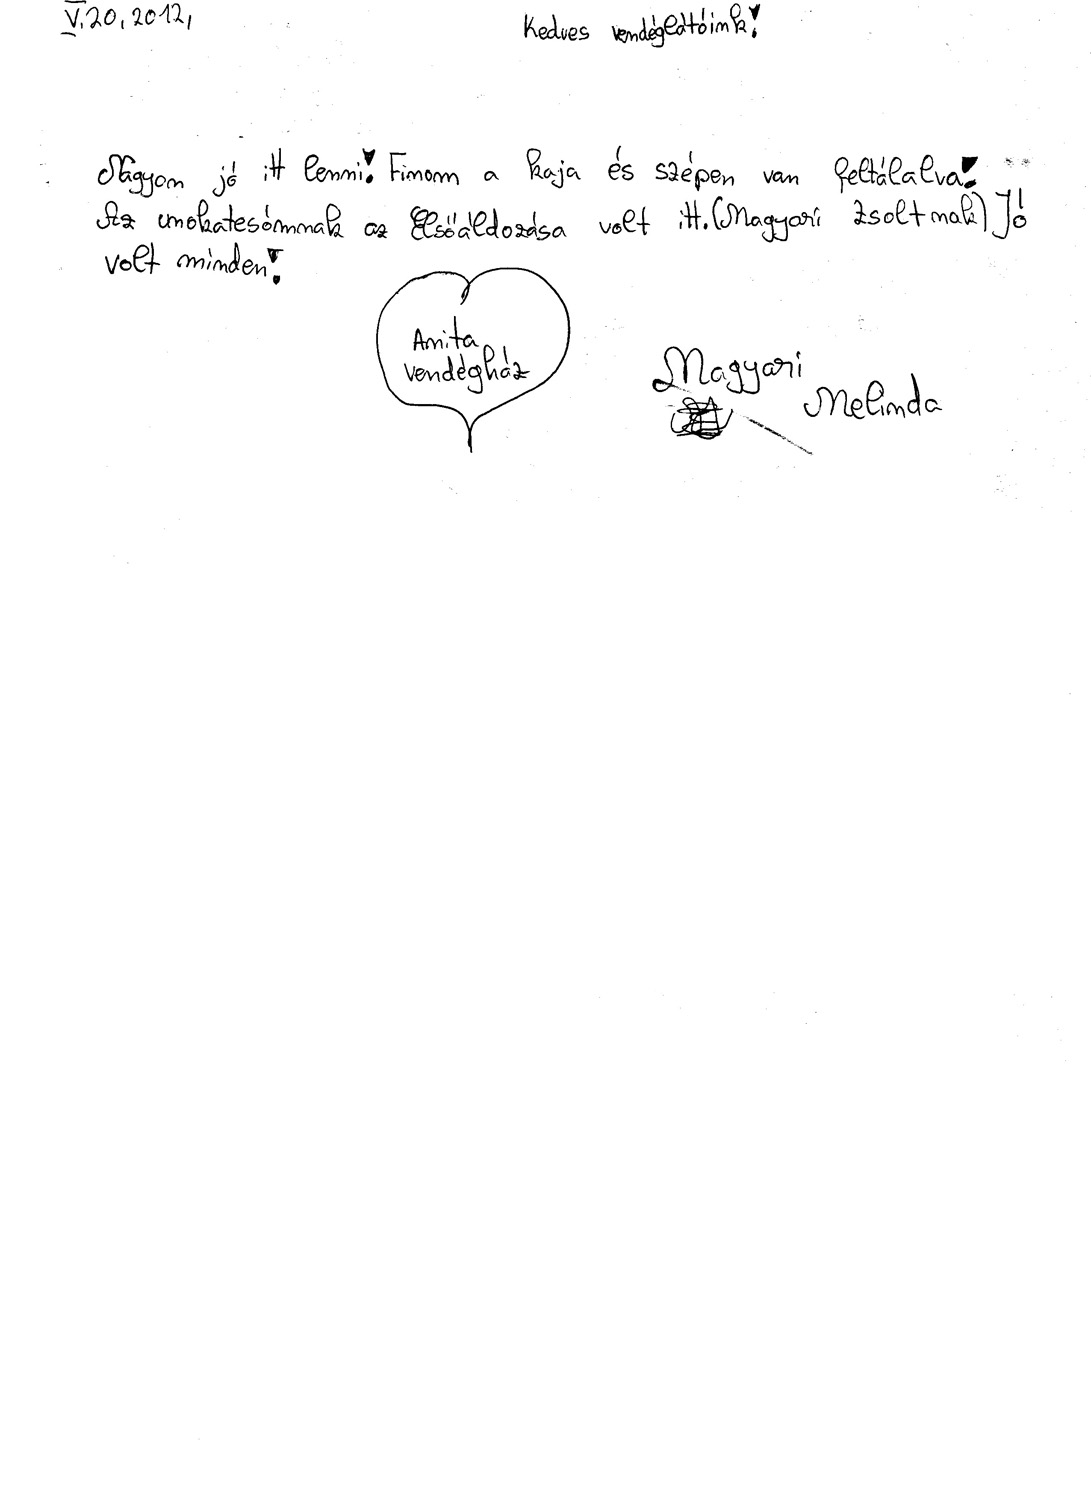 V.20,2012,
Kedves vendéglátóink!
Nagyon jó itt lenni! Finom a kaja és szépen van feltálalva!
Az unokatesómnak az Elsőáldozása volt itt.(Magyari Zsoltnak) Jó
volt minden!
Anita
vendégház
Magyari
Melinda